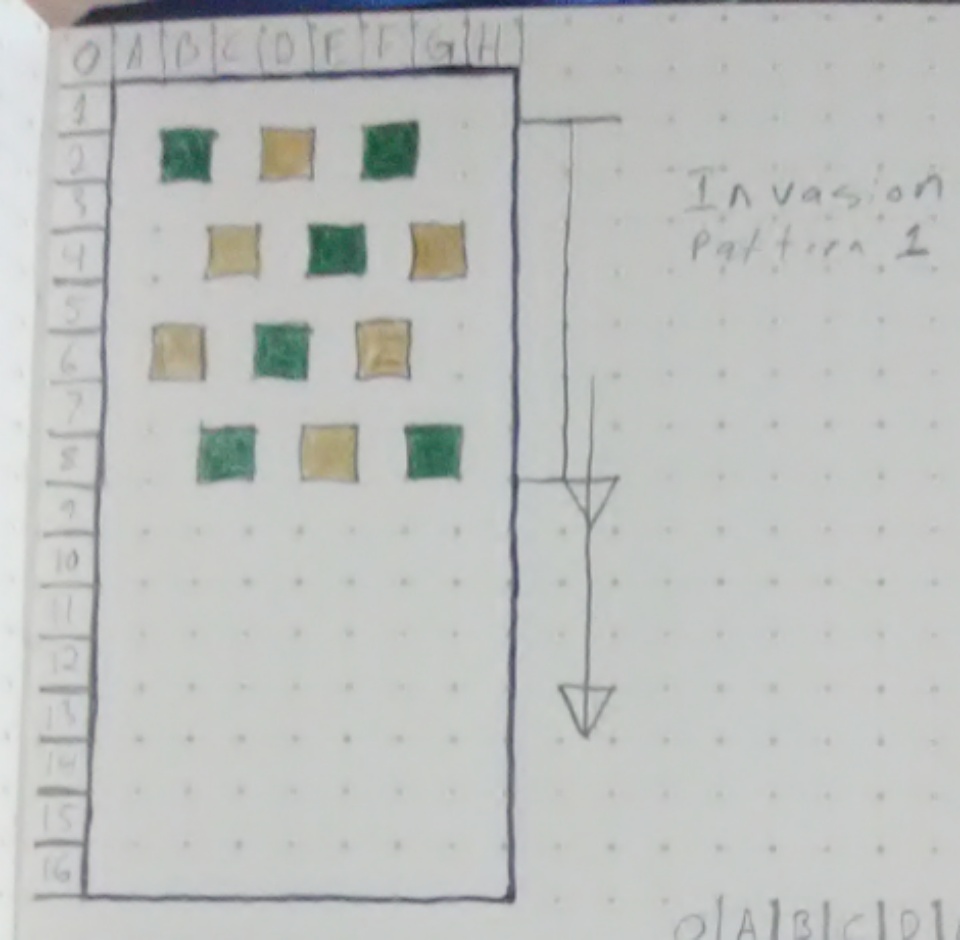 0 A B C D E F G H
1
2
3
4
5
6
7
8
9
10
11
12
13
14
15
16
Invasion
Pattern 1
0 A B C D